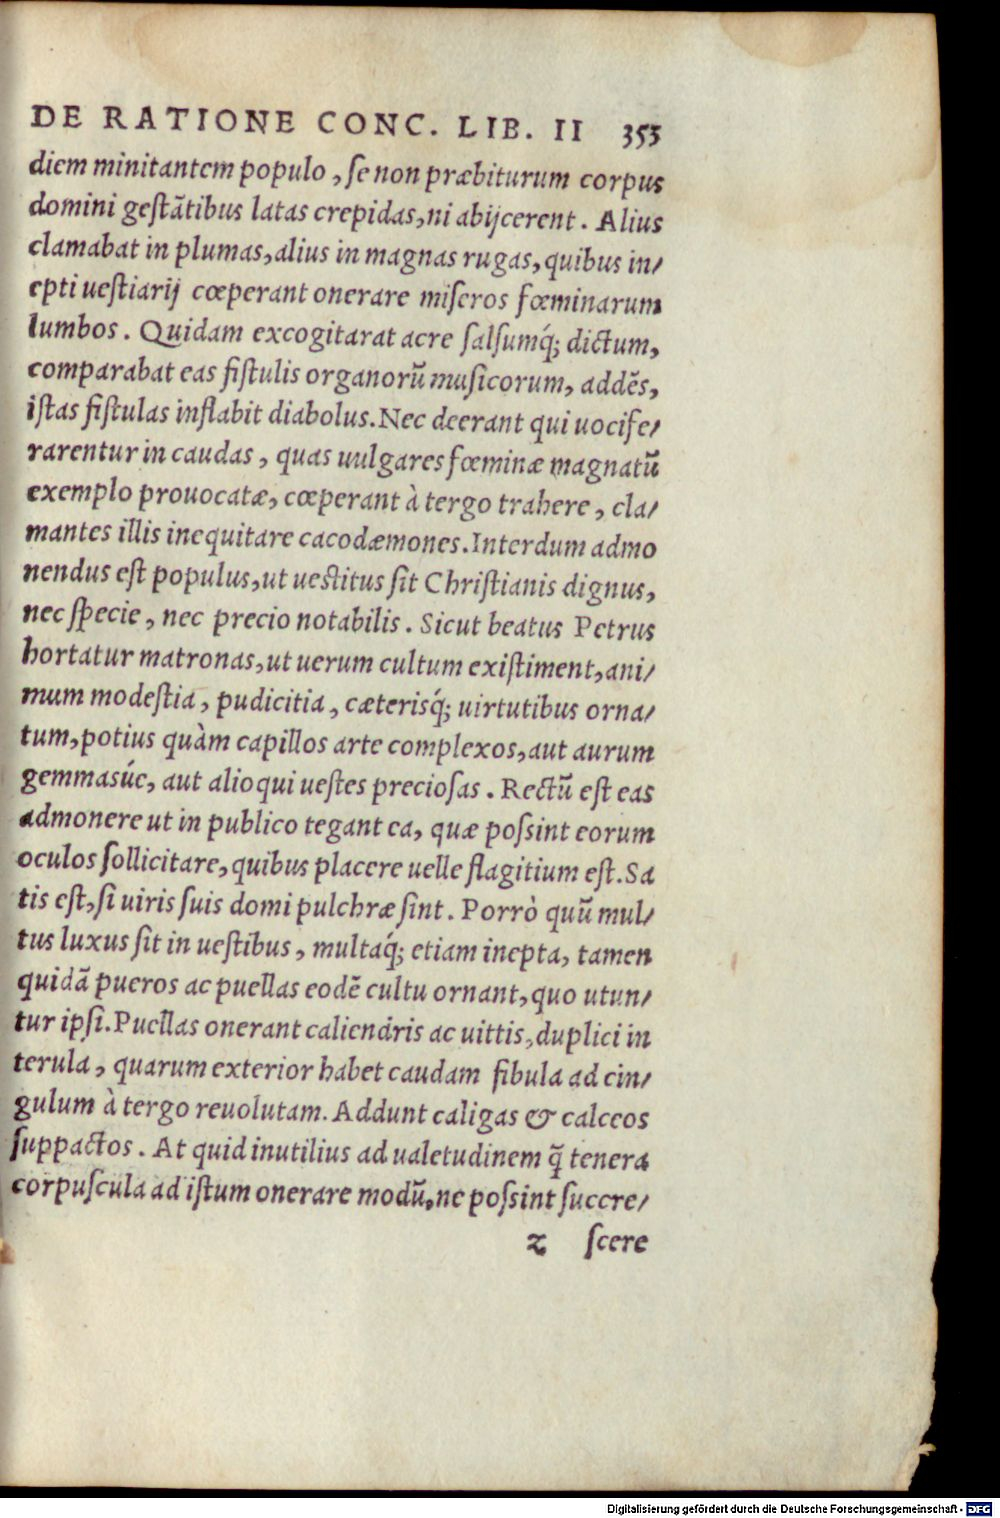 DE RATIONE CONC. LIB. II 353
diem minitantem populo, se non præbiturum corpus
domini gestātibus latas crepidas, ni abijcerent. Alius
clamabat in plumas, alius in magnas rugas, quibus in/
epti uestiarij cœperant onerare miseros fœminarum
lumbos. Quidam excogitarat acre salsumq́; dictum,
comparabat eas fistulis organorū musicorum, addēs,
istas fistulas inflabit diabolus. Nec deerant qui uocife/
rarentur in caudas, quas uulgares fœminæ magnatū
exemplo prouocatæ, cœperant à tergo trahere, cla/
mantes illis inequitare cacodæmones. Interdum admo
nendus est populus, ut uestitus sit Christianis dignus,
nec specie, nec precio notabilis. Sicut beatus Petrus
hortatur matronas, ut uerum cultum existiment, ani/
mum modestia, pudicitia, cæterisq́; uirtutibus orna/
tum, potius quàm capillos arte complexos, aut aurum
gemmasúe, aut alioqui uestes preciosas. Rectū est eas
admonere ut in publico tegant ea, quæ possint eorum
oculos sollicitare, quibus placere uelle flagitium est. Sa
tis est, si uiris suis domi pulchræ sint. Porrò quū mul/
tus luxus sit in uestibus, multaq́; etiam inepta, tamen
quidā pueros ac puellas eodē cultu ornant, quo utun/
tur ipsi. Puellas onerant caliendris ac uittis, duplici in
terula, quarum exterior habet caudam fibula ad cin/
gulum à tergo reuolutam. Addunt caligas & calceos
suppactos. At quid inutilius ad ualetudinem q̄ tenera
corpuscula ad istum onerare modū, ne possint succre/
z scere
Digitalisierung gefördert durch die Deutsche Forschungsgemeinschaft - DFG